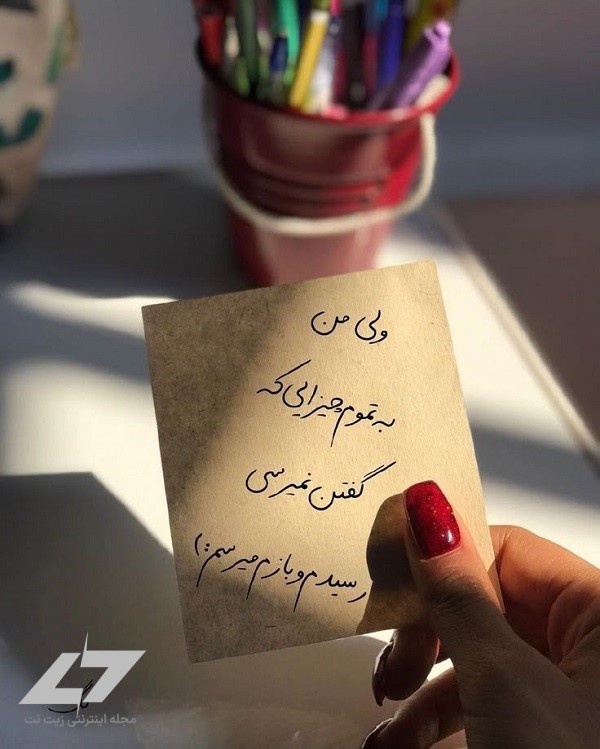 ولی من
به تموم چیزایی که
گفتن نمیرسی
رسیدم و بازم میرسم :)
مگ
مجله اینترنتی زیت نت